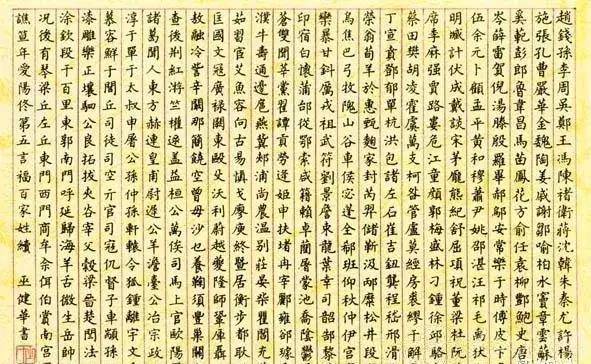 趙錢孫李周吳鄭王馮陳褚衛蔣沈韓朱秦尤許楊
施張孔曹嚴華金魏陶姜戚謝鄒喻柏水竇章雲蘇
奚範彭郎魯韋昌馬苗鳳花方俞任袁柳酆鮑史唐
岑薛雷賀倪湯滕殷羅畢郝鄔安常樂于時傅皮卞
伍余元卜顧孟平黃和穆蕭尹姚邵湛汪祁毛禹狄
明臧計伏成戴談宋茅龐熊紀舒屈項祝董梁杜阮
席季麻强賈路婁危江童顏郭梅盛林刁鍾徐邱駱
蔡田樊胡凌霍虞萬支柯昝管盧莫經房裘繆干解
丁宣賁鄧郁單杭洪包諸左石崔吉鈕龔程嵇邢滑
榮翁荀羊於惠甄麴家封芮羿儲靳汲邴糜松井段
烏焦巴弓牧隗山谷車侯宓蓬全郗班仰秋仲伊宮
欒暴甘鈄厲戎祖武符劉景詹束龍葉幸司韶
印宿白懷蒲邰從鄂索咸籍賴卓藺屠蒙池喬陰鬱
蒼雙聞莘黨翟譚貢勞逄姬申扶堵冉宰酈雍郤璩
濮牛壽通邊扈燕冀郟浦尚農溫別莊晏柴瞿閻充
茹習宦艾魚容向古易慎戈廖庾終暨居衡步都耿
匡國文寇廣祿闕東歐殳沃利蔚越夔隆師鞏厙聶
敖融冷訾辛闞那簡饒空曾毋沙乜養鞠須豐巢關
查後荊紅游竺權逯蓋益桓公万俟司馬上官歐陽
諸葛聞人東方赫連皇甫尉遲公羊澹臺公冶宗政
淳于單于太叔申屠公孫仲孫軒轅令狐鍾離宇文
慕容鮮于閭丘司徒司空亓官司寇仉督子車顓孫
漆雕樂正壤駟公良拓拔夾谷宰父穀梁晉楚閆法
涂欽段干百里東郭南門呼延歸海羊舌微生岳帥
況後有琴梁丘左丘東門西門商牟佘佴伯賞南宮
譙笪年愛陽佟第五言福百家姓續 巫健華書